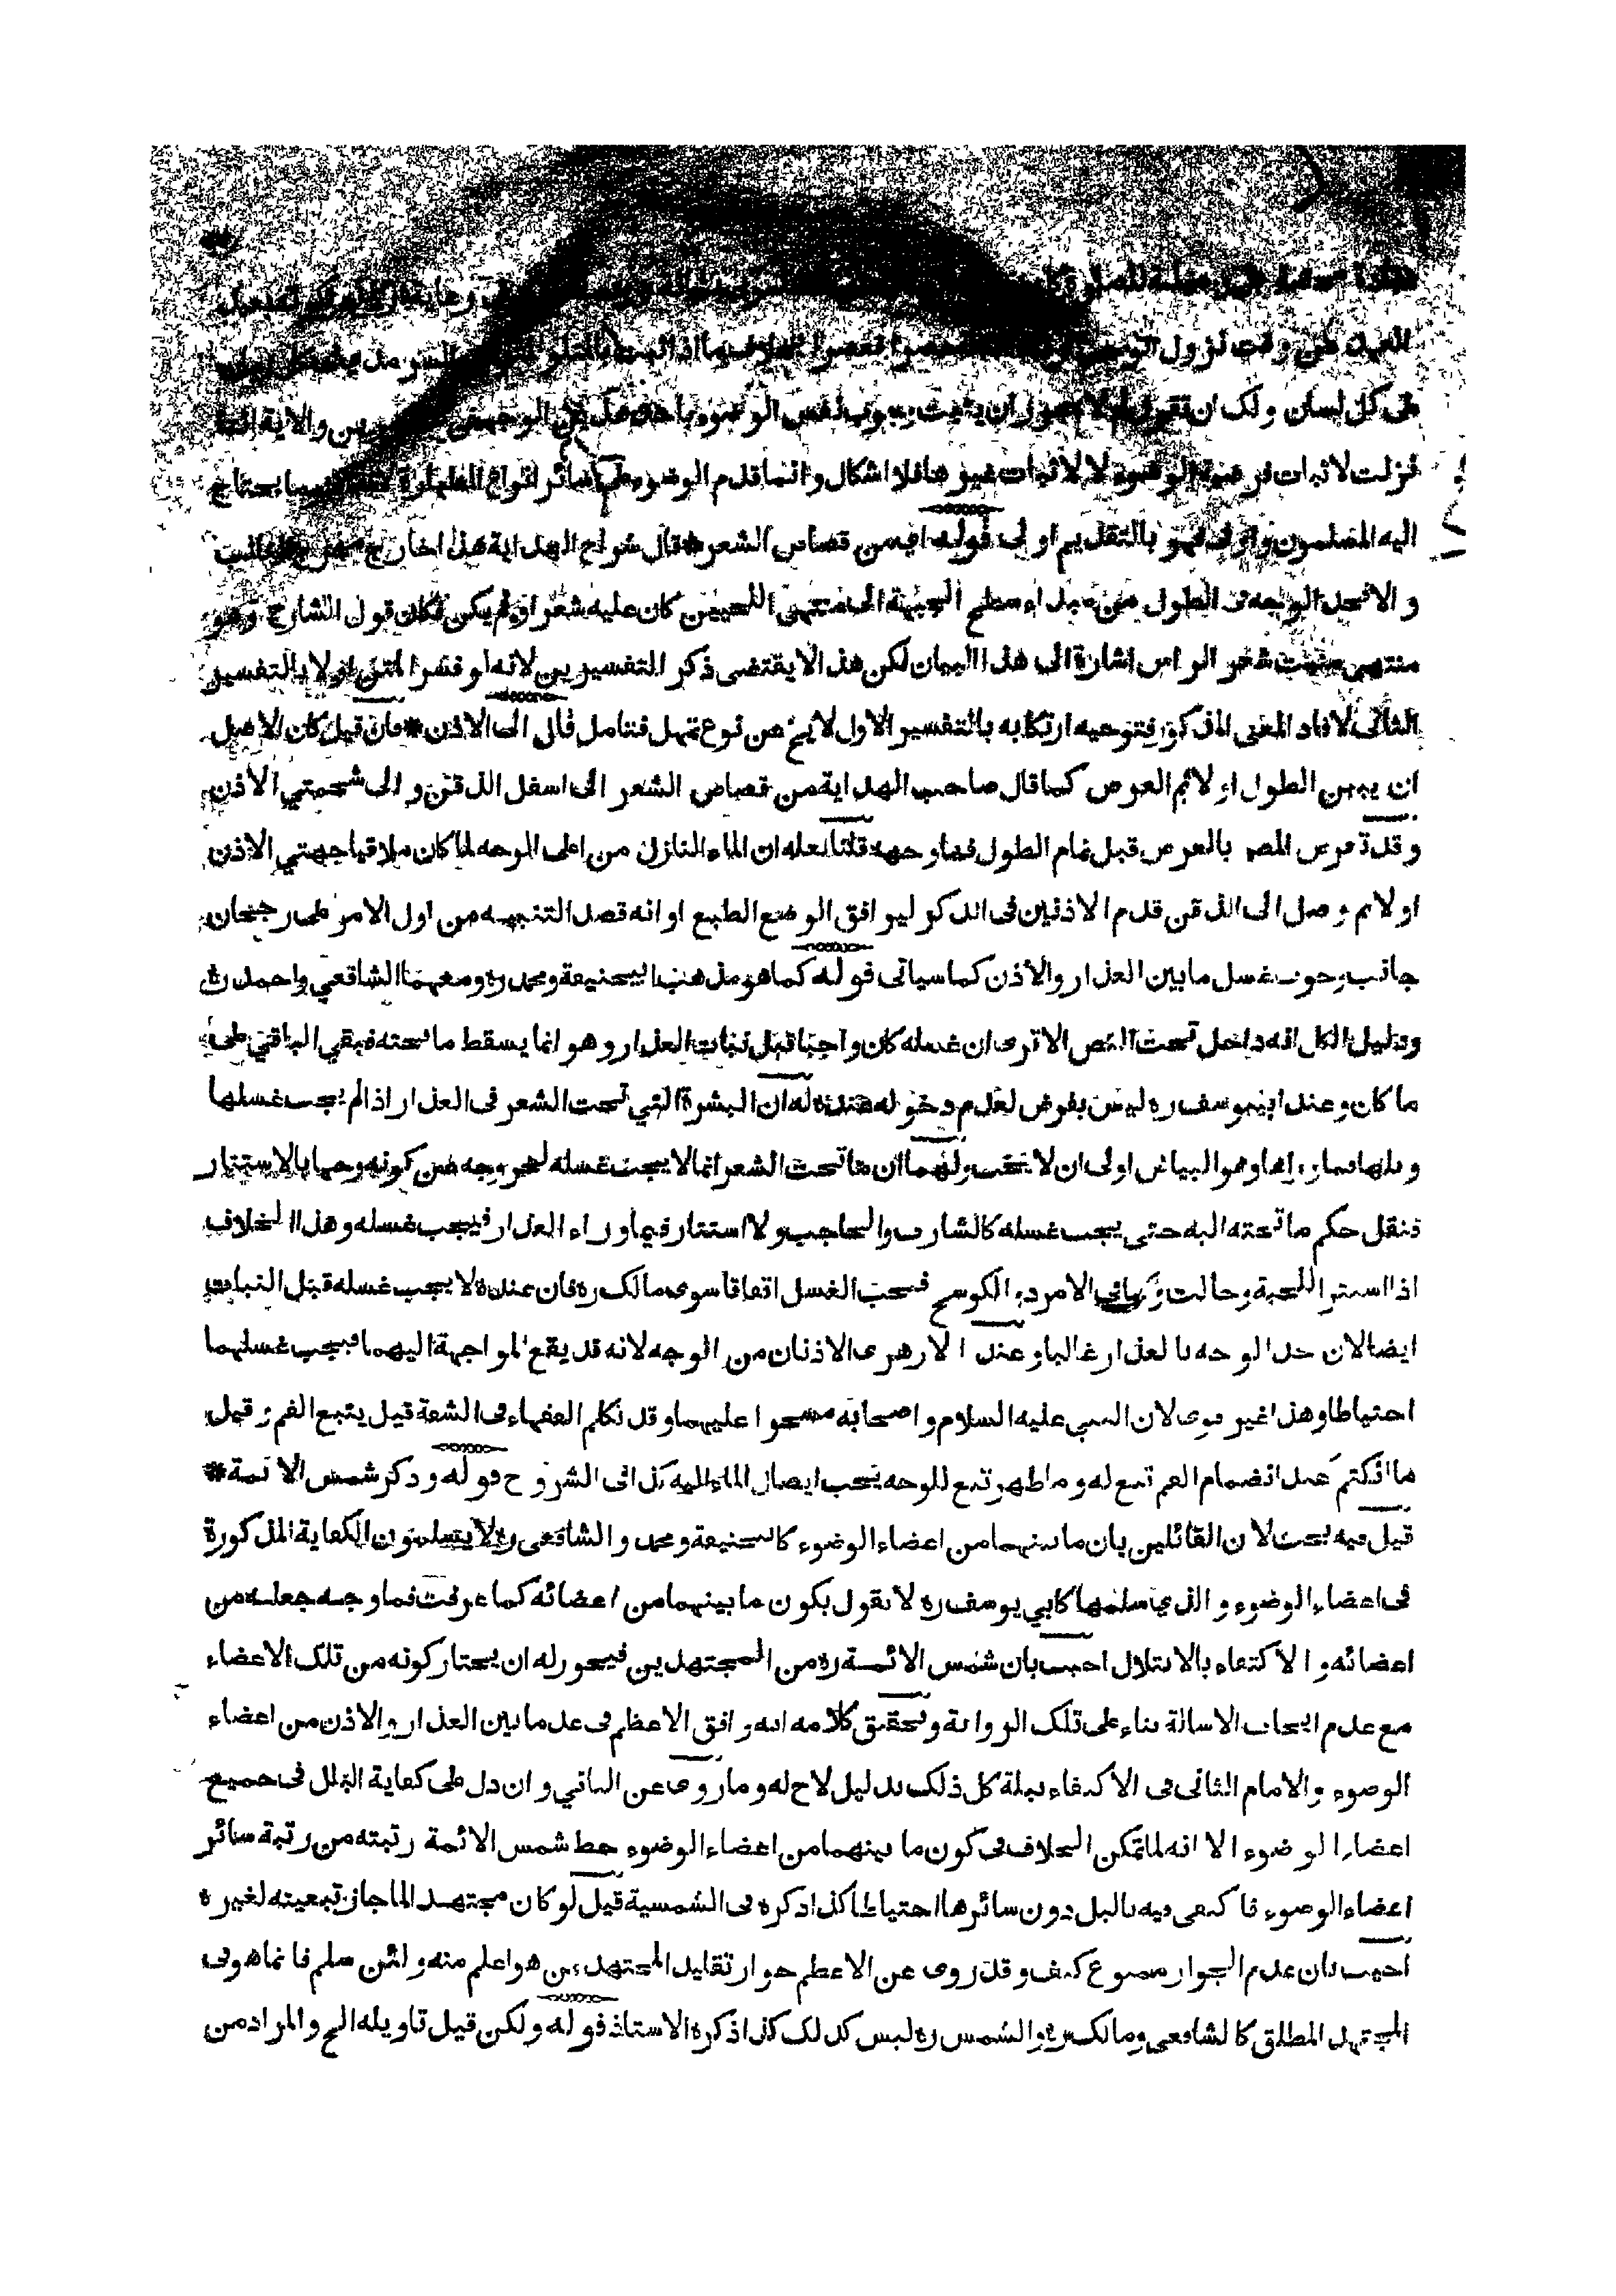 العهد من وقت نزول
على كل لسان ولك ان تقول يجوز ان يثبت وجوب نفس الوضوء الوجهين والاية انما
نزلت لاثبات فرضية الوضوء لا لاثبات غيرها فلا اشكال وانما قدم الوضوء على سائر انواع الطهارة يحتاج
اليه المصلمون فهو بالتقديم اولى قوله من قصاص الشعر * قال شراح الهداية هذا خارج مخرج الغالب
و الا فحد الوجه فى الطول من مبداء سطح الجبهة الى منتهى اللحيين كان عليه شعر او لم يكن فكان قول الشارح وهو
منتهى منبت شعر الراس اشارة الى هذا البيان لكن هذا لا يقتضى ذكر التفسيرين لانه لو فسر المتن اولا بالتفسير
الثانى لافاد المعنى المذكور فتوجيه ارتكابه بالتفسير الاول لا يخ عن نوع تمحل فتامل قال الى الاذن * فان قيل كان الاصل
ان يبين الطول اولا ثم العرض كما قال صاحب الهداية من قصاص الشعر الى اسفل الذقن و الى شحمتي الاذن
وقد تعرض المصم بالعرض قبل تمام الطول فما وجهه قلنا لعله ان الماء النازل من اعلى الوجه لما كان ملاقيا جهتي الاذن
اولا ثم وصل الى الذقن قدم الاذنين فى الذكر ليوافق الوضع الطبع او انه قصد التنبيه من اول الامر على رجحان
جانب وجوب غسل ما بين العذار والاذن كما سياتى قوله كما هو مذهب ابيحنيفة ومحمد ره ومعهما الشافعي واحمد رح
ودليل الكل انه داخل تحت النص الاترى ان غسله كان واجبا قبل نبات العذار وهو انما يسقط ما تحته فبقي الباقي على
ما كان وعند ابيوسف ره ليس بفرض لعدم دخوله عنده له ان البشرة التي تحت الشعر فى العذار اذا لم يجب غسلها
وبلها فما وراءها وهو البياض اولى ان لا يجب ولهما ان ما تحت الشعر انما لا يجب غسله لخروجه من كونه وجها بالاستتار
فنقل حكم ما تحته اليه حتى يجب غسله كالشارب والحاجب ولا استتار فيما وراء العذار فيجب غسله وهذا الخلاف
اذا استتر اللحية وحالت واما فى الامرد والكوسج فيجب الغسل اتفاقا سوى مالك ره فان عنده لا يجب غسله قبل النبات
ايضا لان حد الوجه بالعذار غالبا وعند الازهرى الاذنان من الوجه لانه قد يقع المواجهة اليهما فيجب غسلهما
احتياطا وهذا غير قوى لان النبي عليه السلام واصحابه مسحوا عليهما وقد تكلم الفقهاء فى الشفة قيل يتبع الفم وقيل
ما انكتم عند انضمام الفم تبع له وما ظهر تبع للوجه يجب ايصال الماء اليه كذا فى الشروح قوله وذكر شمس الائمة *
قيل فيه بحث لان القائلين بان ما بينهما من اعضاء الوضوء كابيحنيفة ومحمد و الشافعى ره لا يسلمون الكفاية المذكورة
فى اعضاء الوضوء و الذي يسلمها كابي يوسف ره لا يقول بكون ما بينهما من اعضائه كما عرفت فما وجه جعله من
اعضائه و الاكتفاء بالابتلال اجيب بان شمس الائمة ره من المجتهدين فيجوز له ان يختار كونه من تلك الاعضاء
مع عدم ايجاب الاسالة بناء على تلك الرواية وتحقيق كلامه انه وافق الاعظم فى عد ما بين العذار والاذن من اعضاء
الوضوء والامام الثانى فى الاكتفاء ببلة كل ذلك بدليل لاح له وما روى عن الثاني وان دل على كفاية البلل فى جميع
اعضاء الوضوء الا انه لما تمكن الخلاف فى كون ما بينهما من اعضاء الوضوء حط شمس الائمة رتبته من رتبة سائر
اعضاء الوضوء فاكتفى فيه بالبل دون سائرها احتياطا كذا ذكره فى الشمسية قيل لو كان مجتهدا لما جاز تبعيته لغيره
اجيب بان عدم الجواز ممنوع كيف وقد روى عن الاعظم جواز تقليد المجتهد من هو اعلم منه ولئن سلم فانما هو فى
المجتهد المطلق كالشافعى ومالك ره والشمس ره ليس كذلك كذا ذكره الاستاذ قوله ولكن قيل تاويله الخ والمراد من